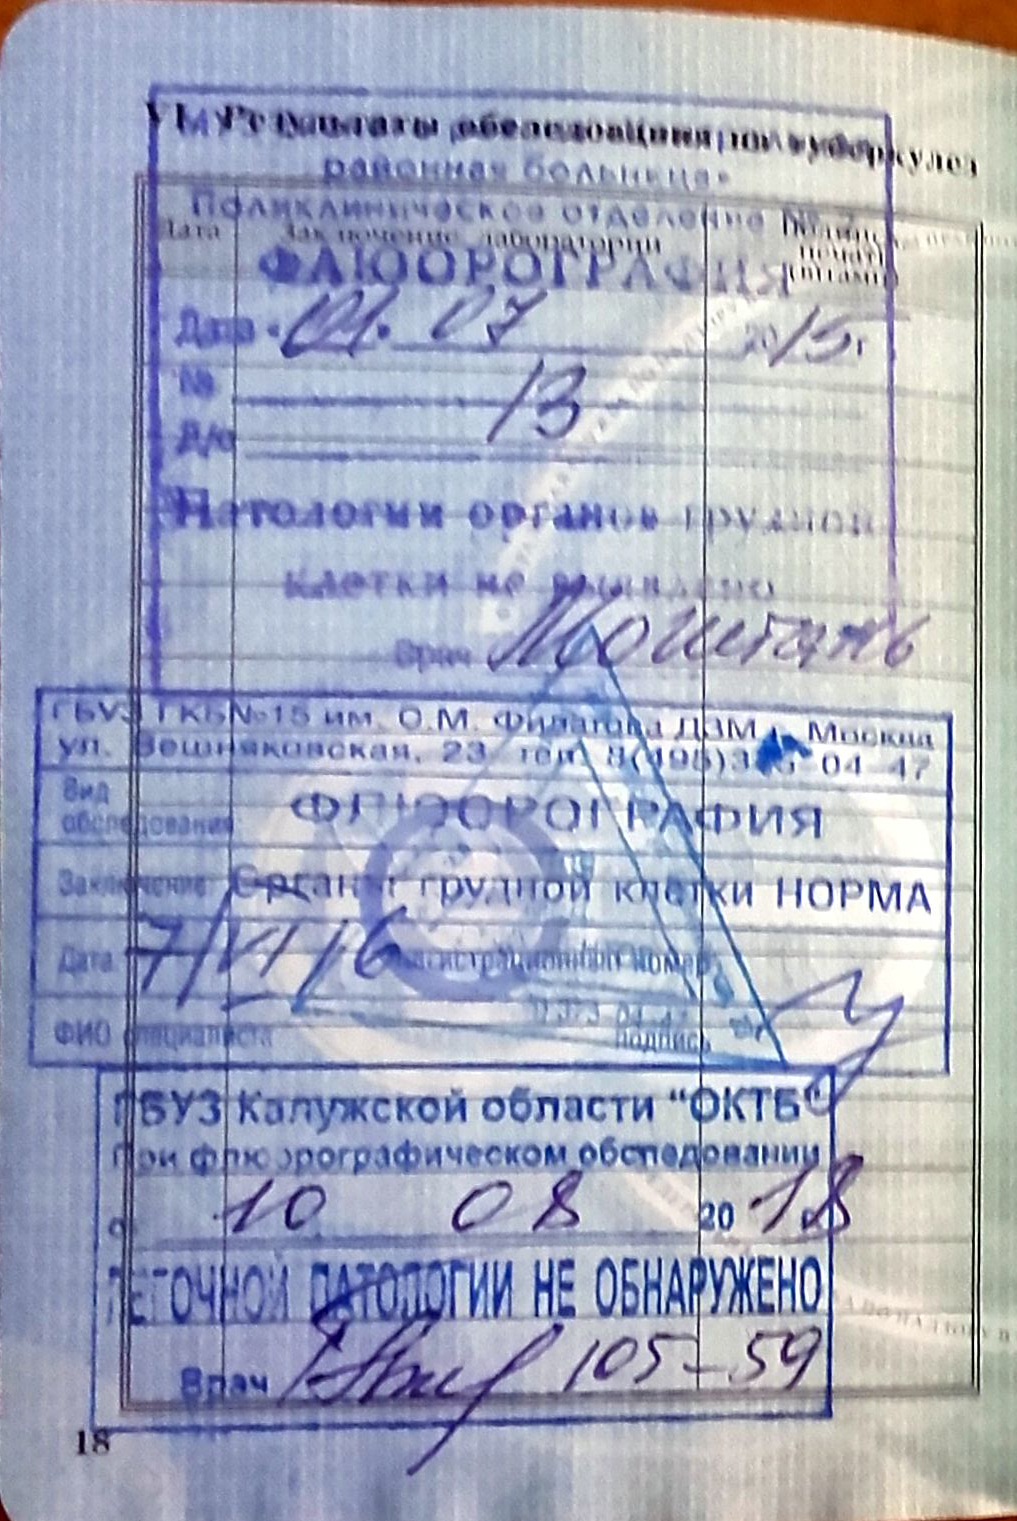 VI. Результаты обследования на туберкулез
районная больница»
Поликлиническое отделение №
Дата Заключение лаборатории Подпись
печать
ФЛЮОРОГРАФИЯ
Дата «01» 07 2015г
№ 13
Д/о
Патологии органов грудной
клетки не выявлено
Врач
ГБУЗ ГКБ№15 им. О.М. Филатова ДЗМ г. Москва
ул. Вешняковская, 23 тел. 8(495)3 04 47
Вид
обследования: ФЛЮОРОГРАФИЯ
Заключение: Органы грудной клетки НОРМА
Дата 7/VI 16 Регистрационный номер
ФИО специалиста подпись
ГБУЗ Калужской области "ОКТБ"
При флюорографическом обследовании
10 08 2018
ЛЕГОЧНОЙ ПАТОЛОГИИ НЕ ОБНАРУЖЕНО
Врач 105-59
18